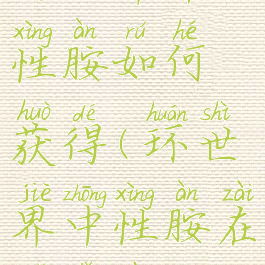 xìng àn rú hé
性胺如何
huò dé huán shì
获得(环世
jiè zhōng xìng àn zài
界中性胺在